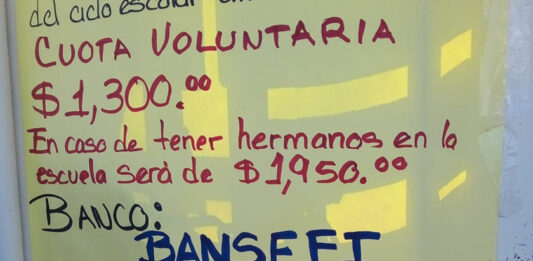 del ciclo escolar
CUOTA VOLUNTARIA
$1,300.00
En caso de tener hermanos en la
escuela será de $1,950.00
BANCO:
BANSEFI